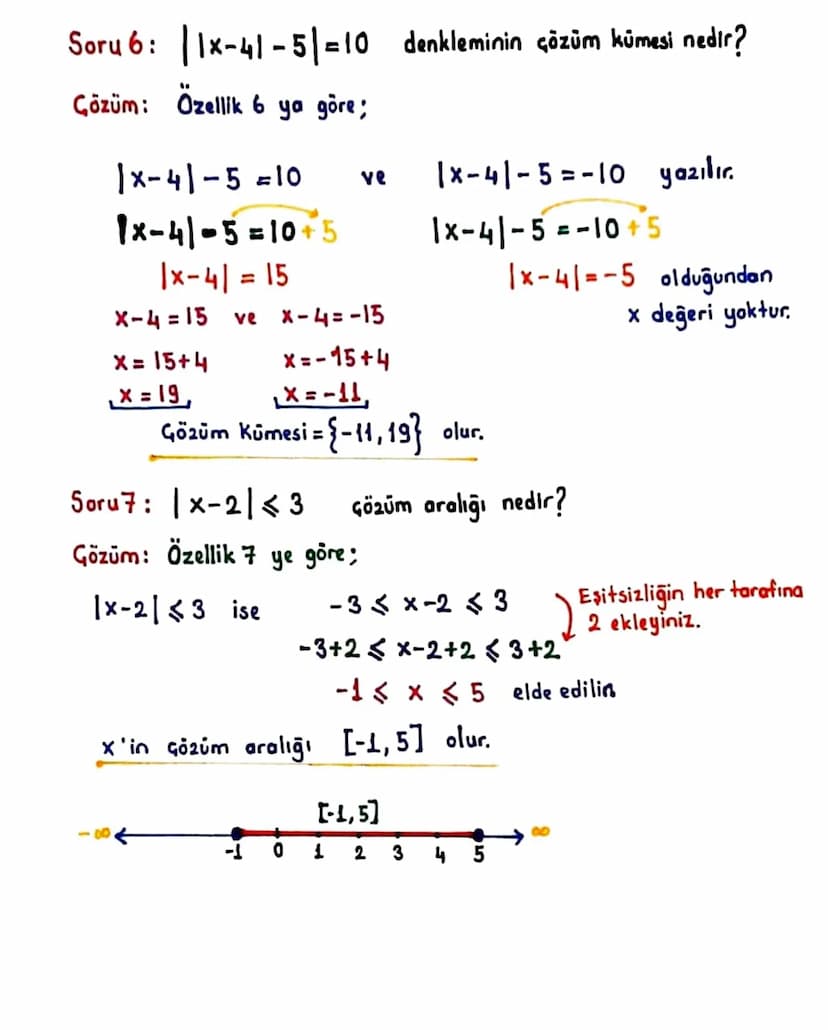 Soru 6: ||x-4|-5|=10 denkleminin çözüm kümesi nedir?
Çözüm: Özellik 6 ya göre;
|x-4|-5=10 ve |x-4|-5=-10 yazılır.
|x-4|-5=10+5 |x-4|-5=-10+5
|x-4|=15 |x-4|=-5 olduğundan
x-4=15 ve x-4=-15 x değeri yoktur.
x=15+4 x=-15+4
x=19 x=-11
Çözüm Kümesi={-11,19} olur.
Soru 7: |x-2|⩽3 çözüm aralığı nedir?
Çözüm: Özellik 7 ye göre;
|x-2|⩽3 ise -3⩽x-2⩽3 Eşitsizliğin her tarafına
2 ekleyiniz.
-3+2⩽x-2+2⩽3+2
-1⩽x⩽5 elde edilir
x'in çözüm aralığı [-1,5] olur.
[-1,5]
-∞ ∞
-1 0 1 2 3 4 5